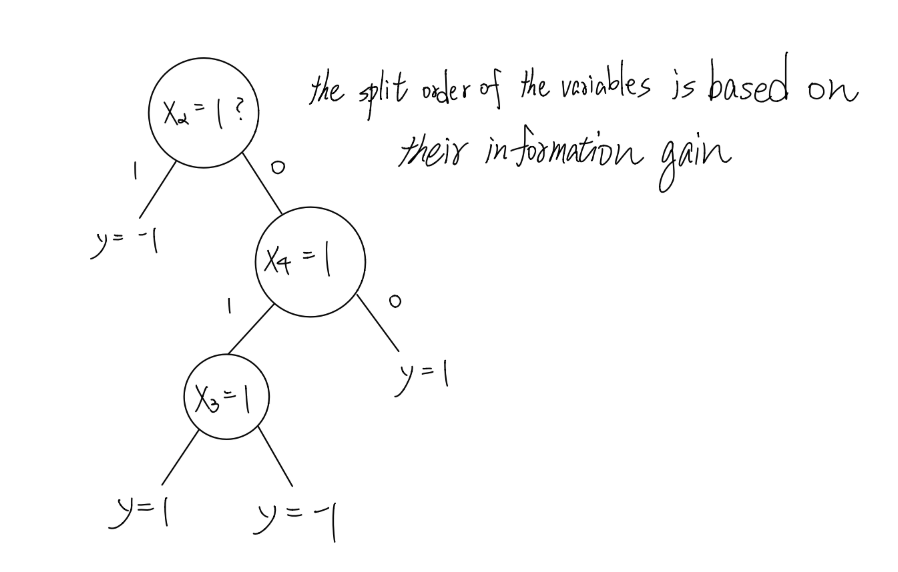 the split order of the variables is based on
x₂ = 1 ?
their information gain
1
0
y = -1
x₄ = 1
1
0
y = 1
x₃ = 1
y = 1
y = -1